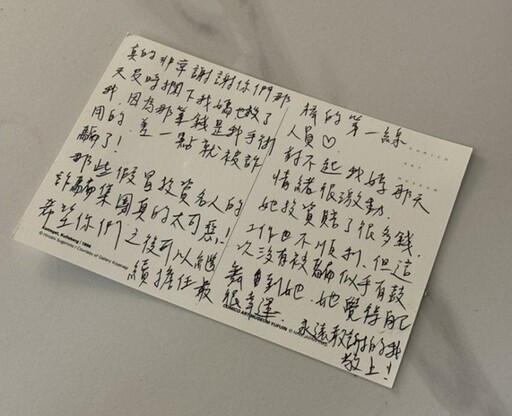 真的非常謝謝你們那
天及時攔下我媽也救了
我,因為那筆錢是我手術
用的,差一點就被詐
騙了!
那些假冒投資名人的
詐騙集團真的太可惡!!
希望你們之後可以繼
續擔任最
© Hiroshi Sugimoto / Courtesy of Gallery Koyanagi
COMICO
ART
MUSEUM
棒的第一線
人員♡.
對不起我媽那天
情緒很激動.
她投資賠了很多錢.
工作也不順利.但這
次沒有被騙似乎有鼓
舞到她.她覺得自己
很幸運.
永遠 謝的我
敬上!
COMICO ART MUSEUM YUFUIN